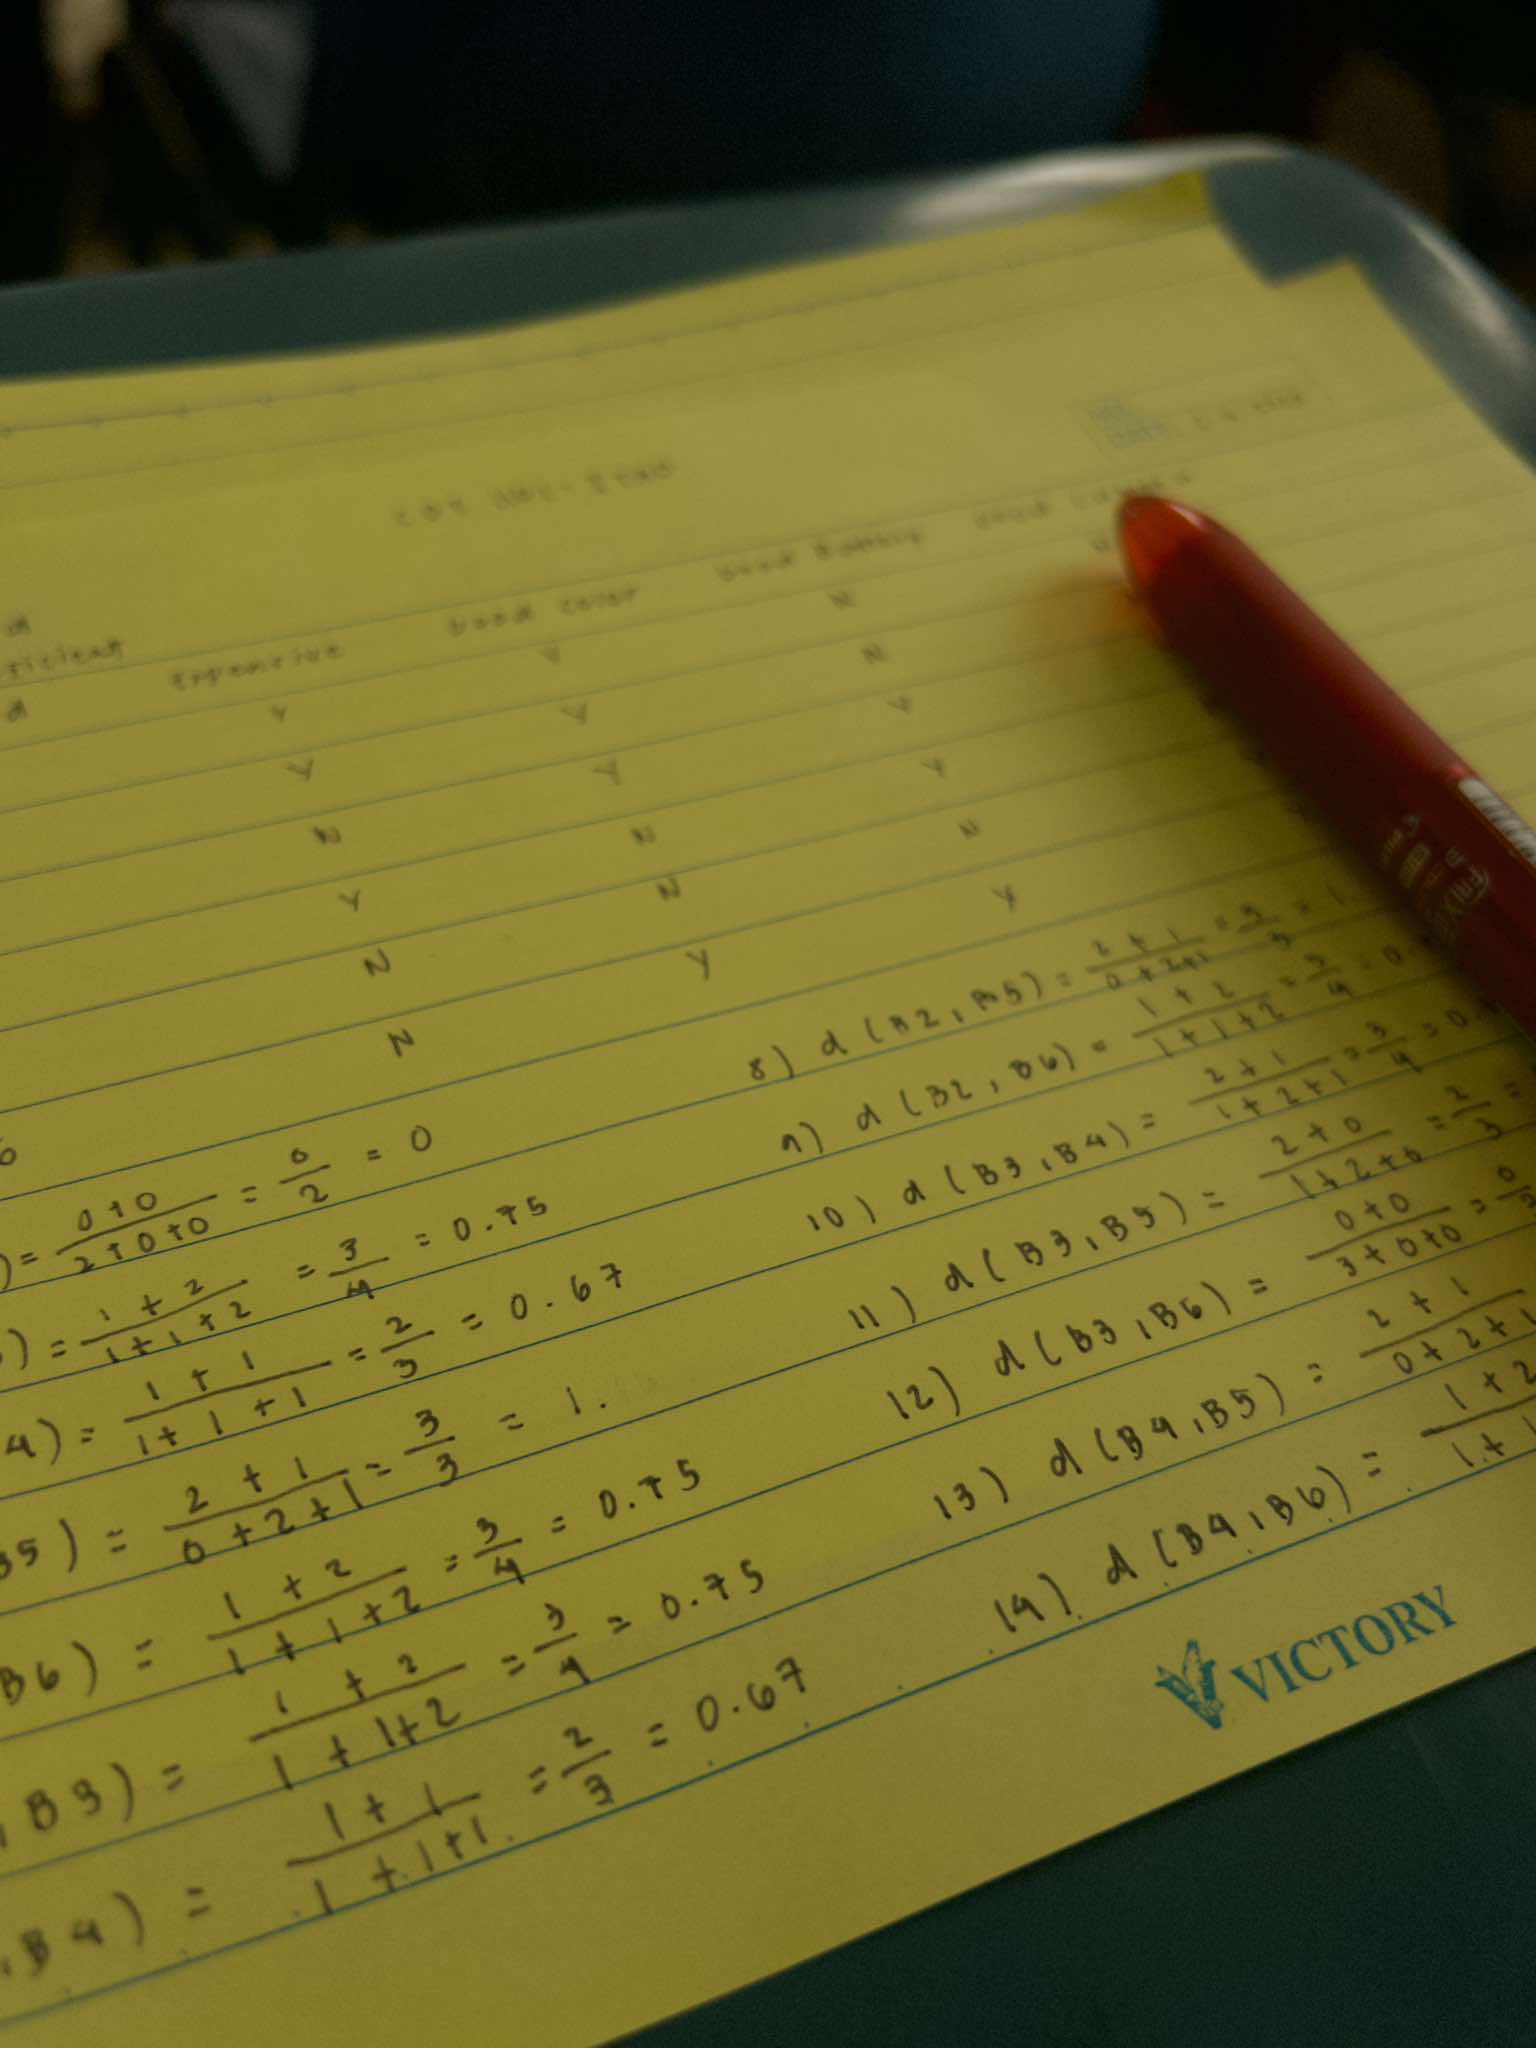 Expensive Good Color Good Battery Good
Y Y N
Y Y N
N Y Y
Y N Y
N N N
N Y Y
) = 0+0 / 2+0+0 = 0/2 = 0
) = 1+2 / 1+1+2 = 3/4 = 0.75
4) = 1+1 / 1+1+1 = 2/3 = 0.67
B5) = 2+1 / 0+2+1 = 3/3 = 1.
B6) = 1+2 / 1+1+2 = 3/4 = 0.75
, B3) = 1+2 / 1+1+2 = 3/4 = 0.75
, B4) = 1+1 / 1+1+1 = 2/3 = 0.67
8) d(B2, B5) = 2+1 / 0+2+1 = 3/3 = 1
9) d(B2, B6) = 1+2 / 1+1+2 = 3/4 = 0.
10) d(B3, B4) = 2+1 / 1+2+1 = 3/4 = 0.
11) d(B3, B5) = 2+0 / 1+2+0 = 2/3 =
12) d(B3, B6) = 0+0 / 3+0+0 = 0/3
13) d(B4, B5) = 2+1 / 0+2+1
14) d(B4, B6) = 1+2 / 1+1
VICTORY